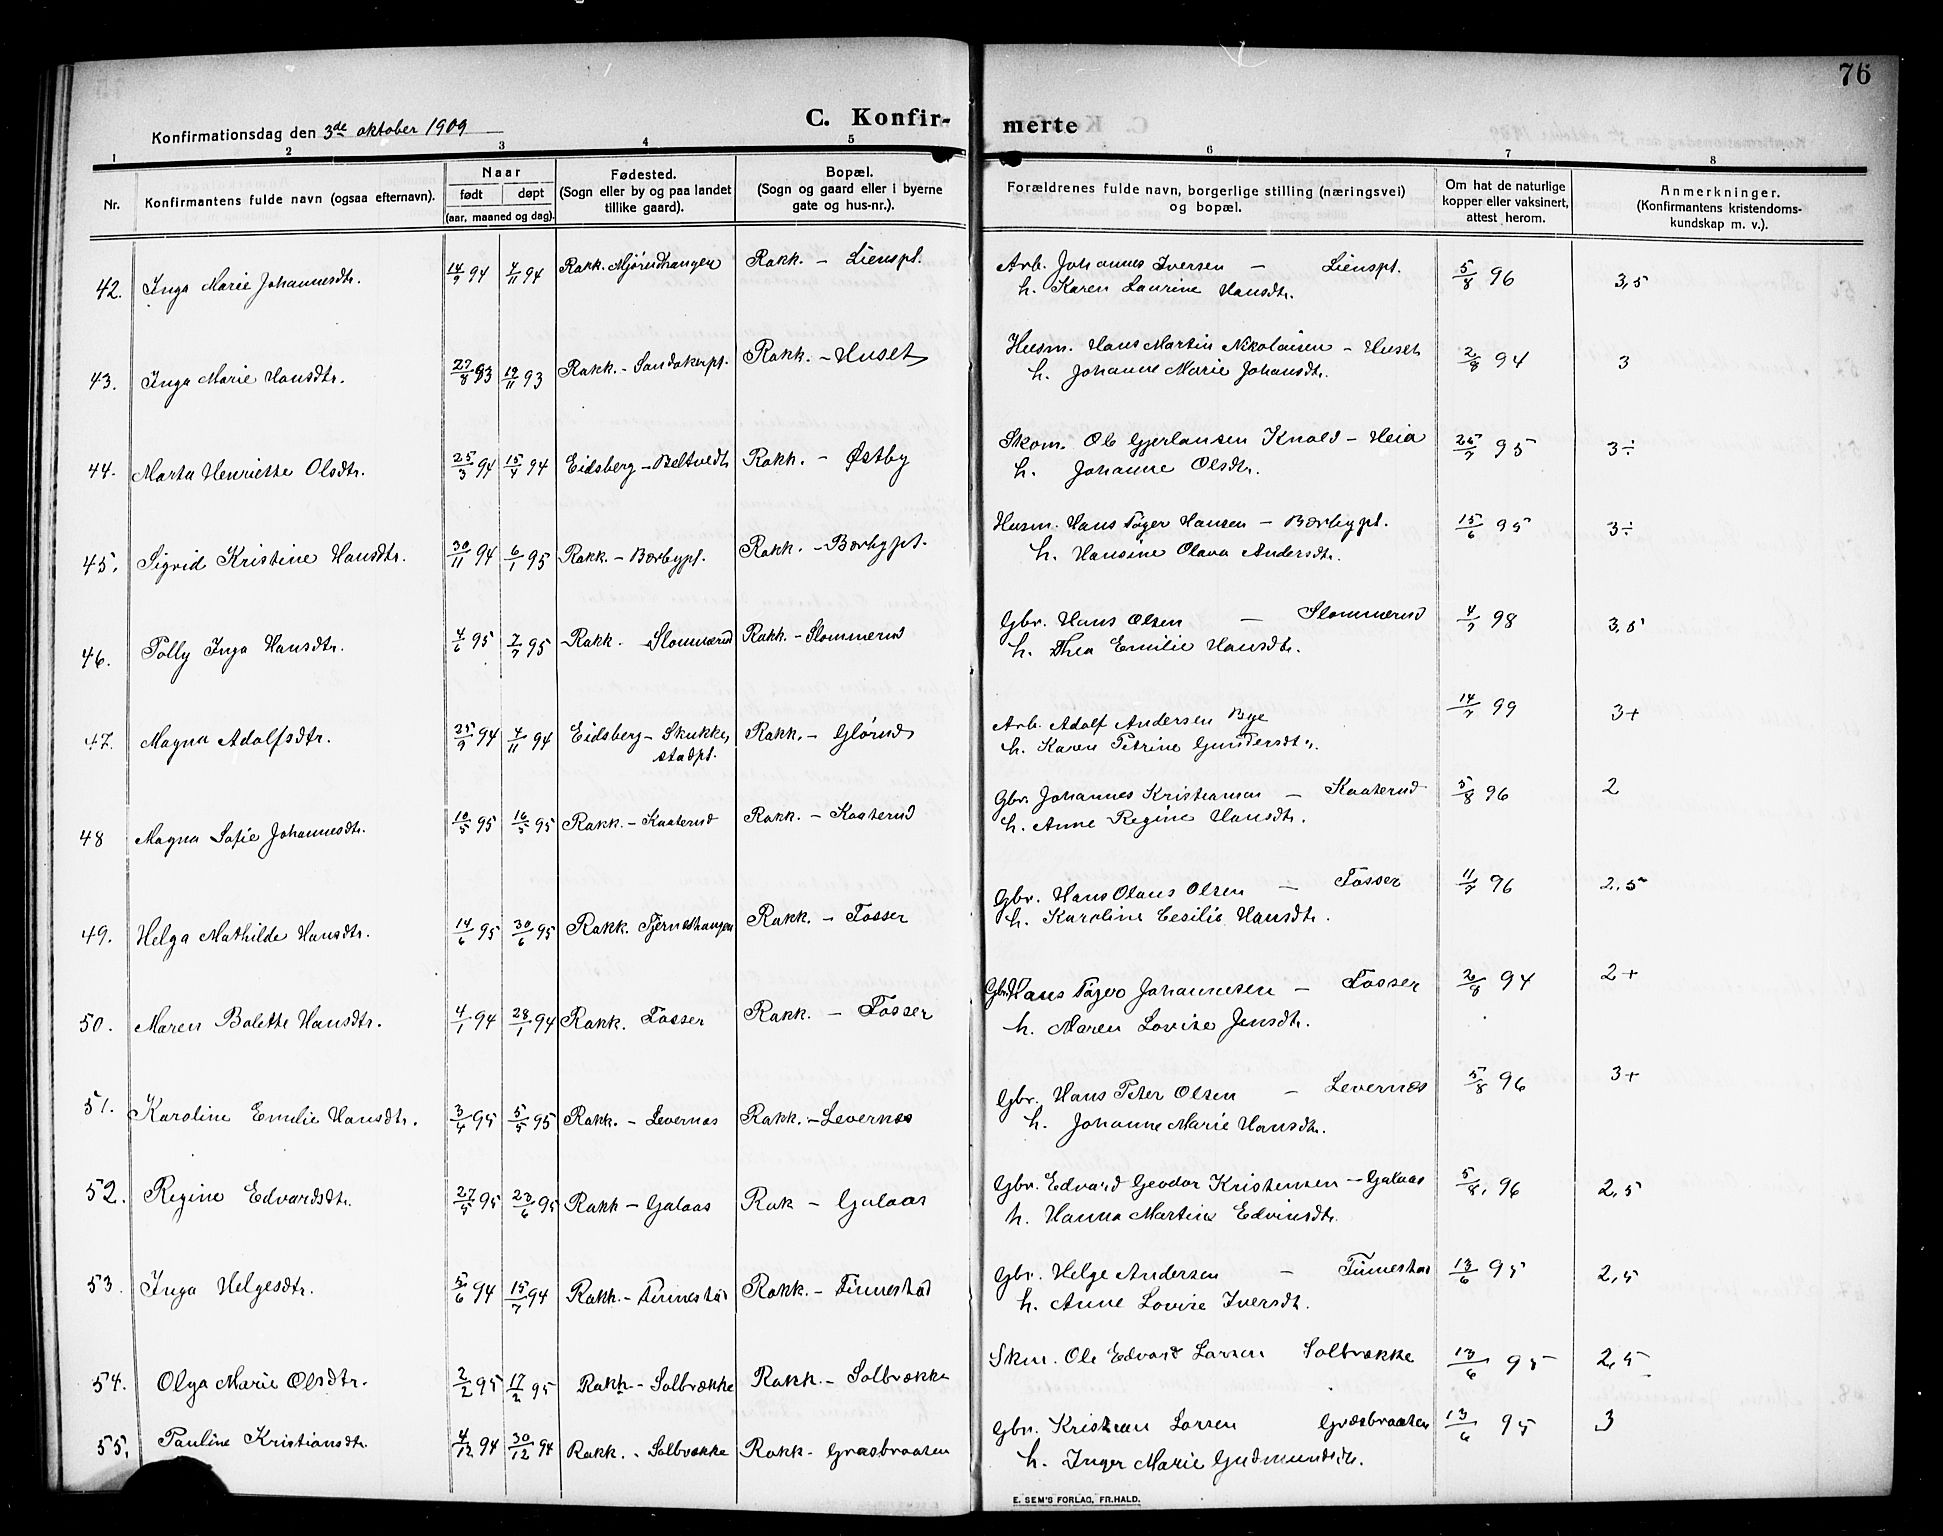 76
C. Konfir- merte
Konfirmationsdag den 3de oktober 1909
1 2 3 4 5 6 7 8
Nr.
Konfirmantens fulde navn (ogsaa efternavn).
Naar
født døpt
(aar, maaned og dag).
Fødested.
(Sogn eller by og paa landet
tillike gaard).
Bopæl.
(Sogn og gaard eller i byerne
gate og hus-nr.).
Forældrenes fulde navn, borgerlige stilling (næringsvei)
og bopæl.
Om hat de naturlige
kopper eller vaksinert,
attest herom.
Anmerkninger.
(Konfirmantens kristendoms-
kundskap m. v.).
42. Inga Marie Johannesdtr. 14/9 94 4/11 94 Rakk. Mjørudhangen Rakk. – Lienspl. Arb. Johannes Iversen – Lienspl. 5/8 96 3,5
h. Karen Laurine Hansdtr.
43. Inga Marie Hansdtr. 27/8 93 12/11 93 Rakk. – Sandakerpl. Rakk. – Huset Husm. Hans Martin Nikolaisen – Huset 2/8 94 3
h. Johanne Marie Johansdtr.
44. Marta Henriette Olsdtr. 25/3 94 15/4 94 Eidsberg – Beltvedt Rakk. – Østby Skom. Ole Gjerlausen Knold – Heia 25/7 95 3÷
h. Johanne Olsdtr.
45. Sigrid Kristine Hansdtr. 30/11 94 6/1 95 Rakk. – Bærbypl. Rakk. – Bærbypl. Husm. Hans Tøger Hansen – Bærbypl. 15/6 95 3÷
h. Hansine Olava Andersdtr.
46. Polly Inga Hansdtr. 4/6 95 7/7 95 Rakk. – Slommerud Rakk. – Slommerud Gbr. Hans Olsen – Slommerud 4/7 98 3,5
h. Thea Emilie Hansdtr.
47. Magna Adolfsdtr. 25/9 94 4/11 94 Eidsberg – Skukke, Rakk. – Glørud Arb. Adolf Andersen Bye 14/7 99 3+
stadpl.
h. Karen Petrine Gundersdtr.
48 Magna Sofie Johannesdtr. 10/5 95 16/5 95 Rakk. – Kaaterud Rakk. – Kaaterud Gbr. Johannes Kristiansen – Kaaterud 5/8 96 2
h. Anne Regine Hansdtr.
49. Helga Mathilde Hansdtr. 14/6 95 30/6 95 Rakk. Tjerneshaugen Rakk. – Fosser Gbr. Hans Olaus Olsen – Fosser 11/7 96 2,5
h. Karoline Cesilie Hansdtr.
50. Maren Bolette Hansdtr. 4/1 94 28/1 94 Rakk. Fosser Rakk. – Fosser Gbr. Hans Tøger Johannesen – Fosser 2/8 94 2+
h. Maren Lovise Jensdtr.
51. Karoline Emilie Hansdtr. 3/4 95 5/5 95 Rakk. – Levernæs Rakk. – Levernæs Gbr. Hans Peter Olsen – Levernæs 5/8 96 3+
h. Johanne Marie Hansdtr.
52. Regine Edvardsdtr. 27/5 95 23/6 95 Rakk – Galaas Rak – Galaas Gbr. Edvard Geodor Kristensen – Galaas 5/8. 96 2,5
h. Hanna Martine Edvinsdtr.
53. Inga Helgesdtr. 5/6 94 15/7 94 Rakk. – Finnestad Rakk. – Finnestad Gbr. Helge Andersen – Finnestad 13/6 95 2,5
h. Anne Lovise Iversdtr.
54. Olga Marie Olsdtr. 2/2 95 17/2 95 Rakk. – Solbrække Rakk. – Solbrække Skm. Ole Edvard Larsen Solbrække 13/6 95 2,5
55. Pauline Kristiansdtr. 4/12 94 30/12 94 Rakk. – Solbrække Rakk – Græsbraaten Gbr. Kristian Larsen Græsbraaten 13/6 95 3
h. Inger Marie Gudmundsdtr.
E. SEM'S FORLAG, FR.HALD.